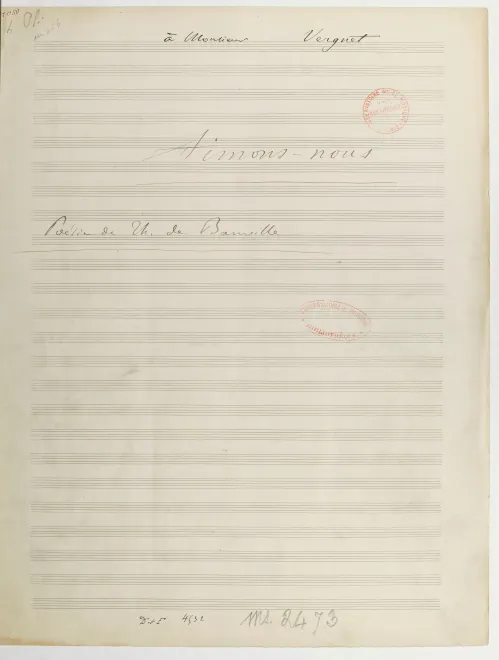 à Monsieur Vergnet
Aimons-nous
Poésie de Th. de Banville
Ms. 2473